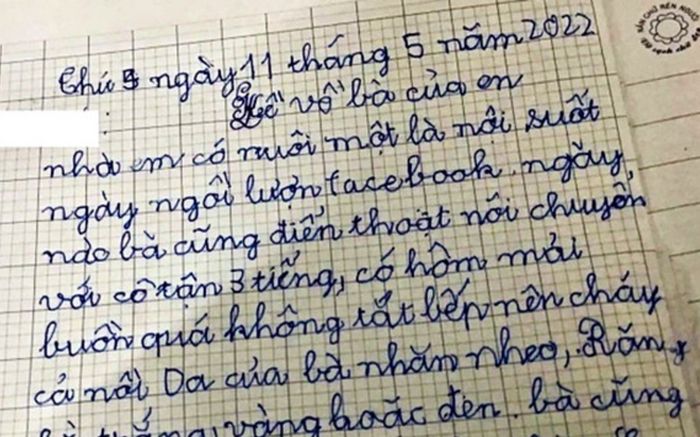 Thứ 5 ngày 11 tháng 5 năm 2022
Kể về bà của en
nhà em có nuôi một là nội suốt
ngày ngồi lượn facebook, ngày
nào bà cũng điển thoạt nôi chuyện
với cô tận 3 tiếng, có hôm mải
buôn quá không tắt bếp nên cháy
cả nồi Da của bà nhăn nheo, Răng
vàng hoặc đen. bà cũng